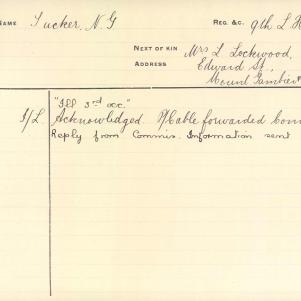 NAME Tucker, N.G REG. &C. 9th L.H
NEXT OF KIN Mrs L Lockwood,
ADDRESS Edward St,
Mount Gambier
"Ill 3rd occ."
I/L Acknowledged. Cable forwarded Com
Reply from Commis. Information sent